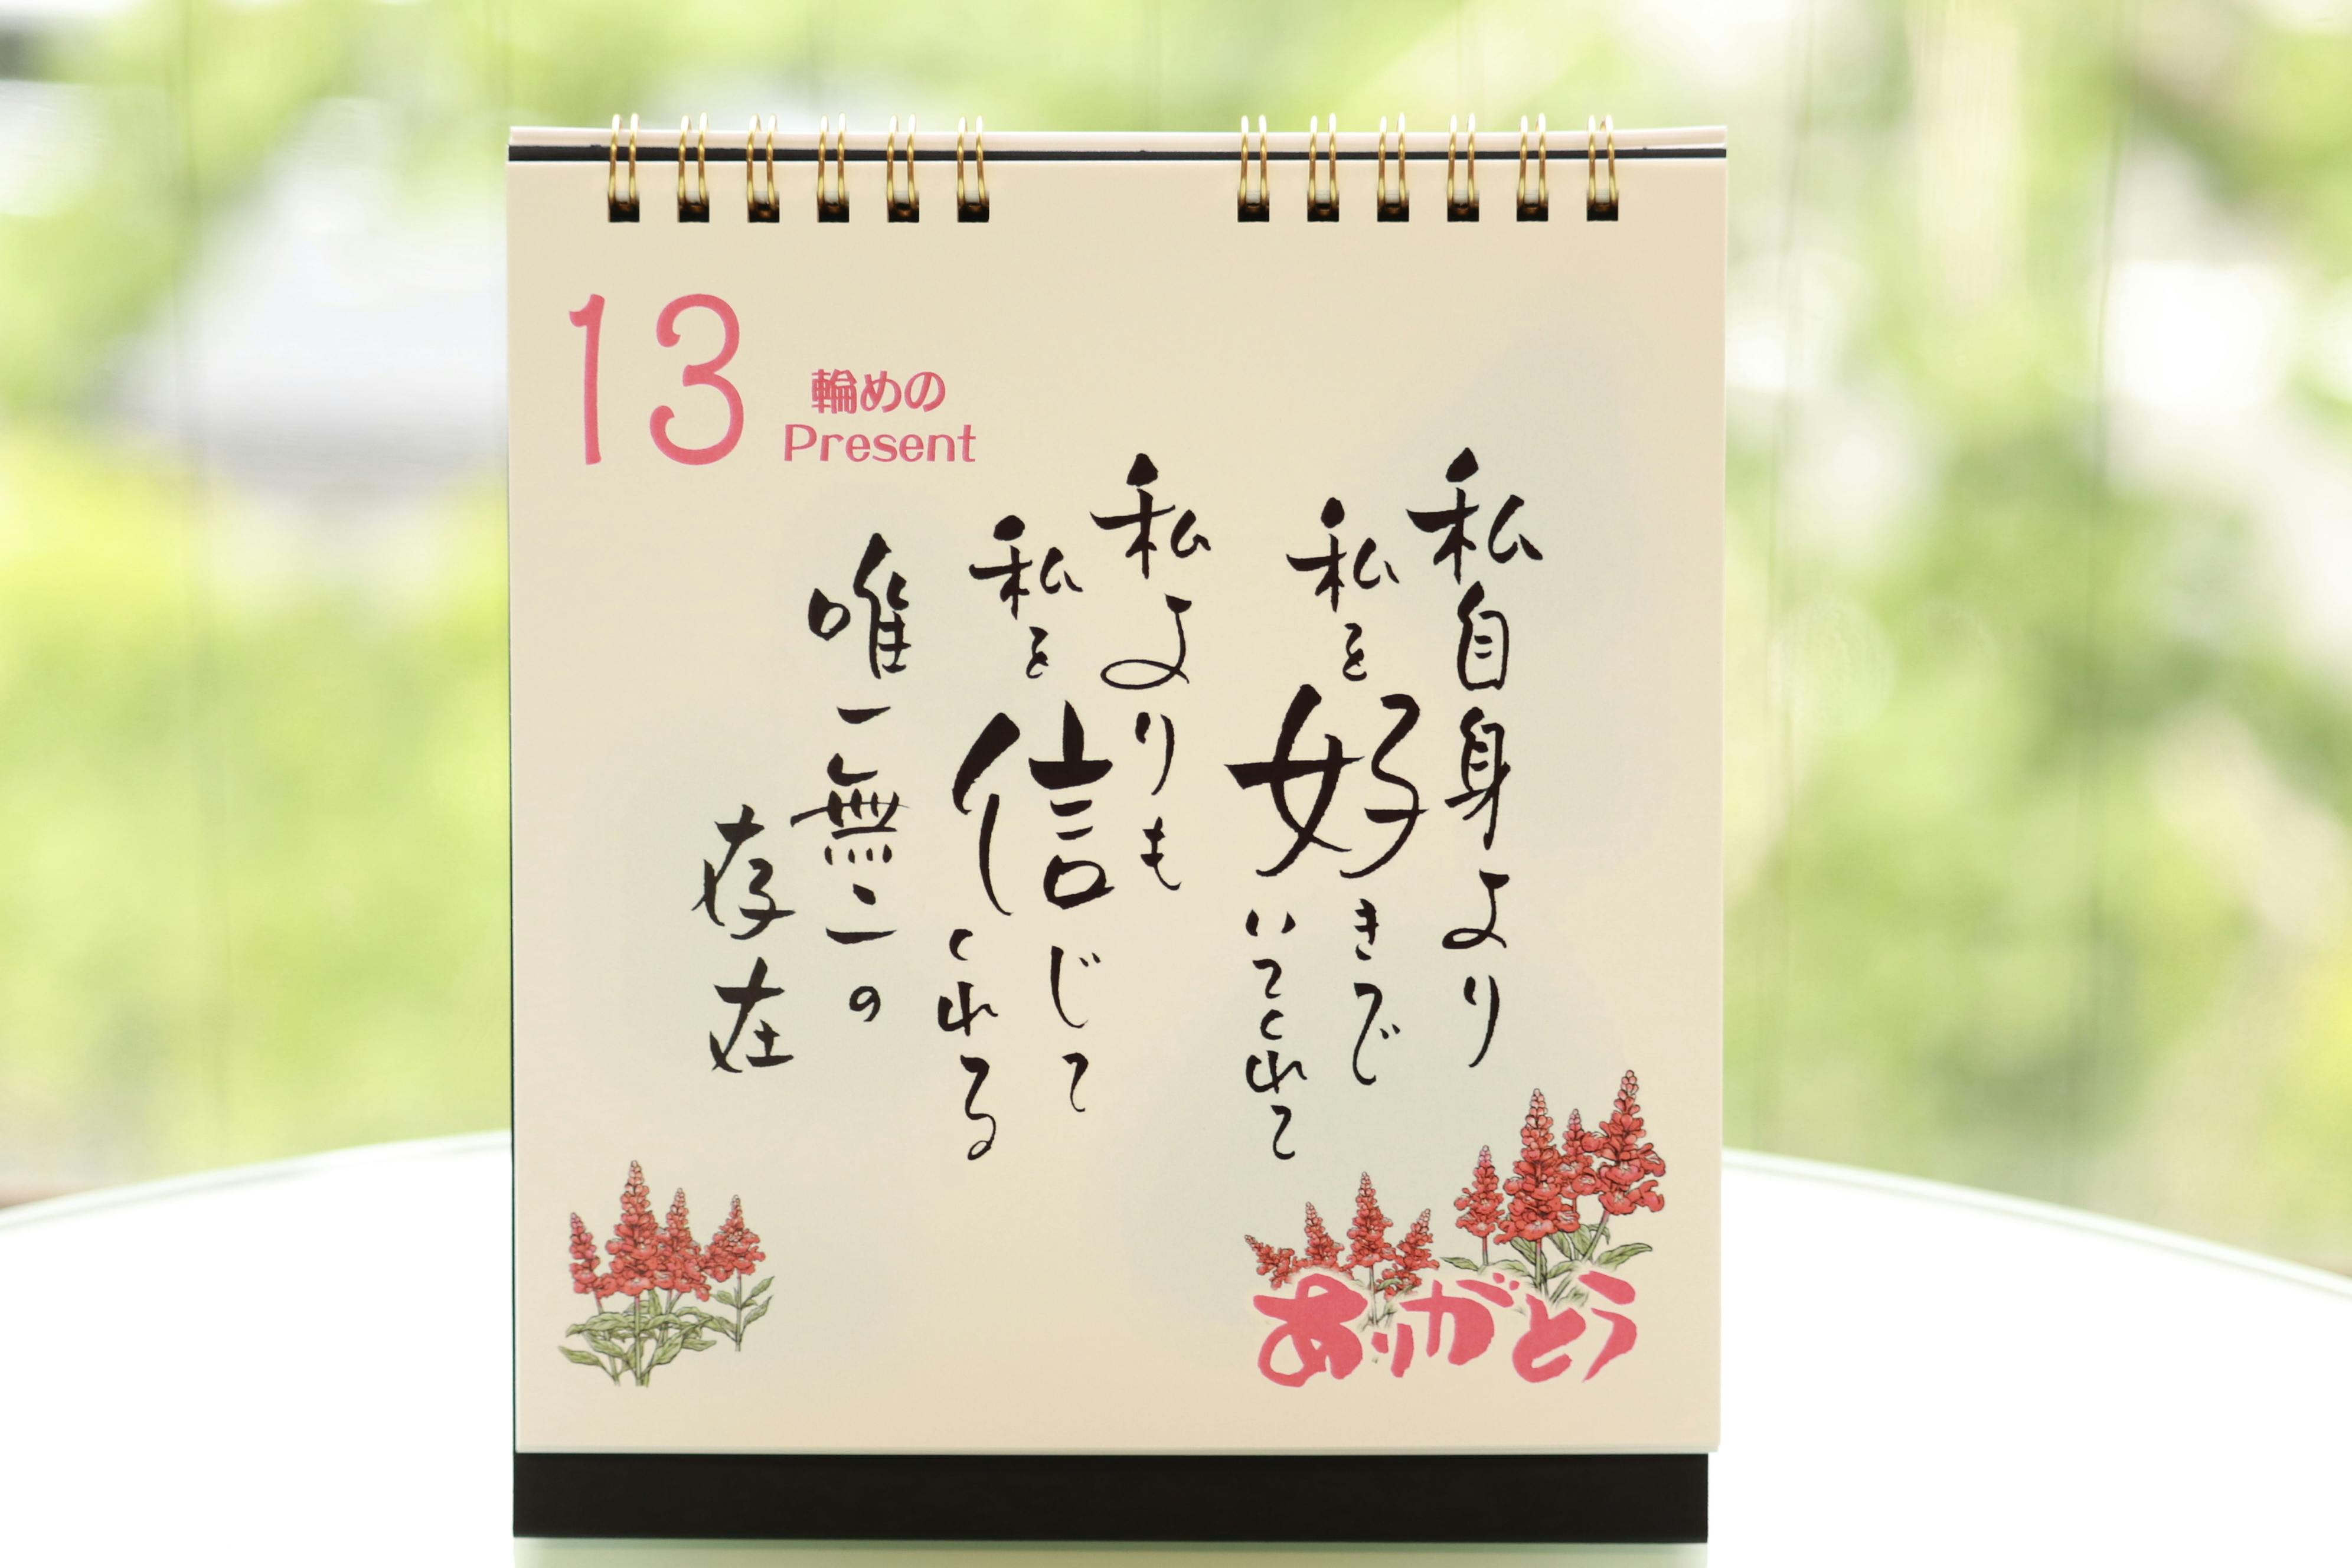 13
輪めの
Present
私自身より
私を好きで
いてくれて
私よりも
私を信じて
くれる
唯一無二の
存在
ありがとう